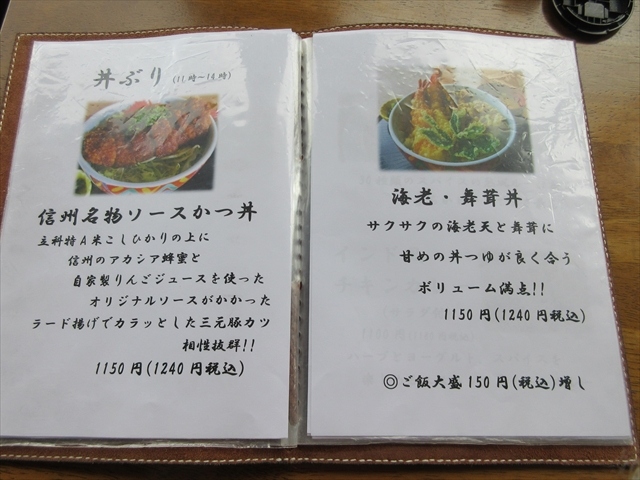 丼ぶり (11時~14時)
信州名物ソースかつ丼
立科特A米こしひかりの上に
信州のアカシア蜂蜜と
自家製りんごジュースを使った
オリジナルソースがかかった
ラード揚げでカラッとした三元豚カツ
相性抜群!!
1150円(1240円税込)
海老・舞茸丼
サクサクの海老天と舞茸に
甘めの丼つゆが良く合う
ボリューム満点!!
1150円(1240円税込)
◎ご飯大盛150円(税込)増し